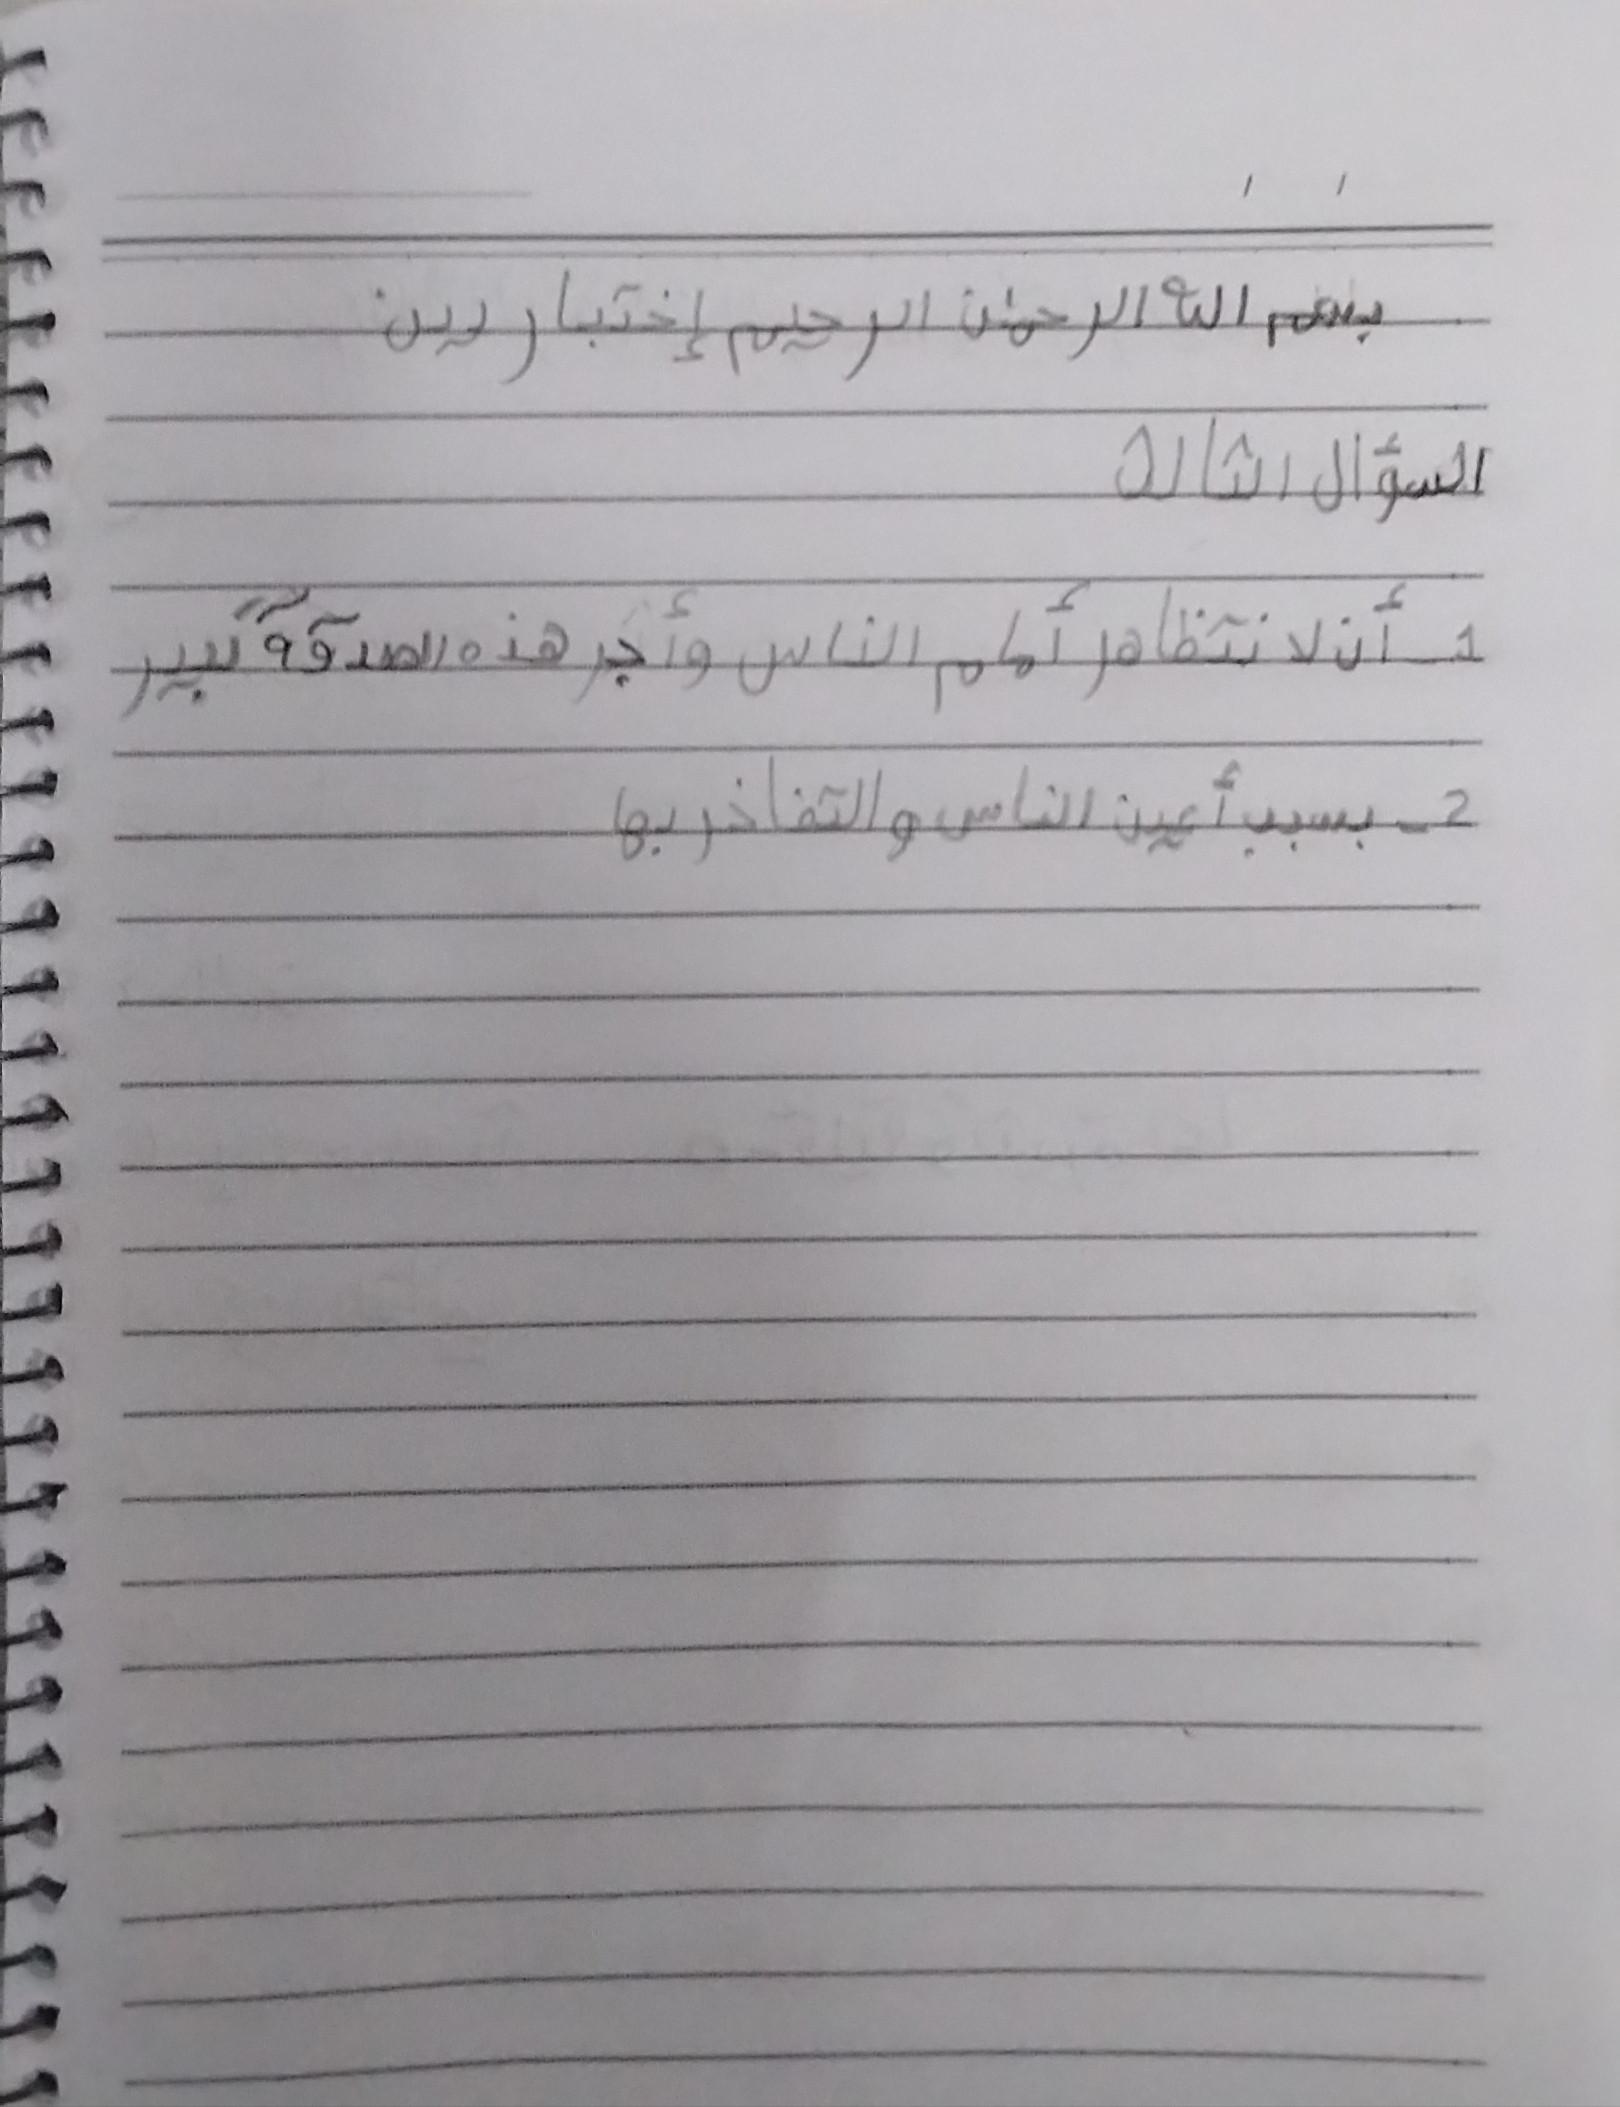 بسم الله الرحمٰن الرحيم إختبار دين
السؤال الثالث
1_ أن لا نتظاهر أمام الناس وأجر هذه الصدقة كبير
2_ بسبب أعين الناس والتفاخر بها